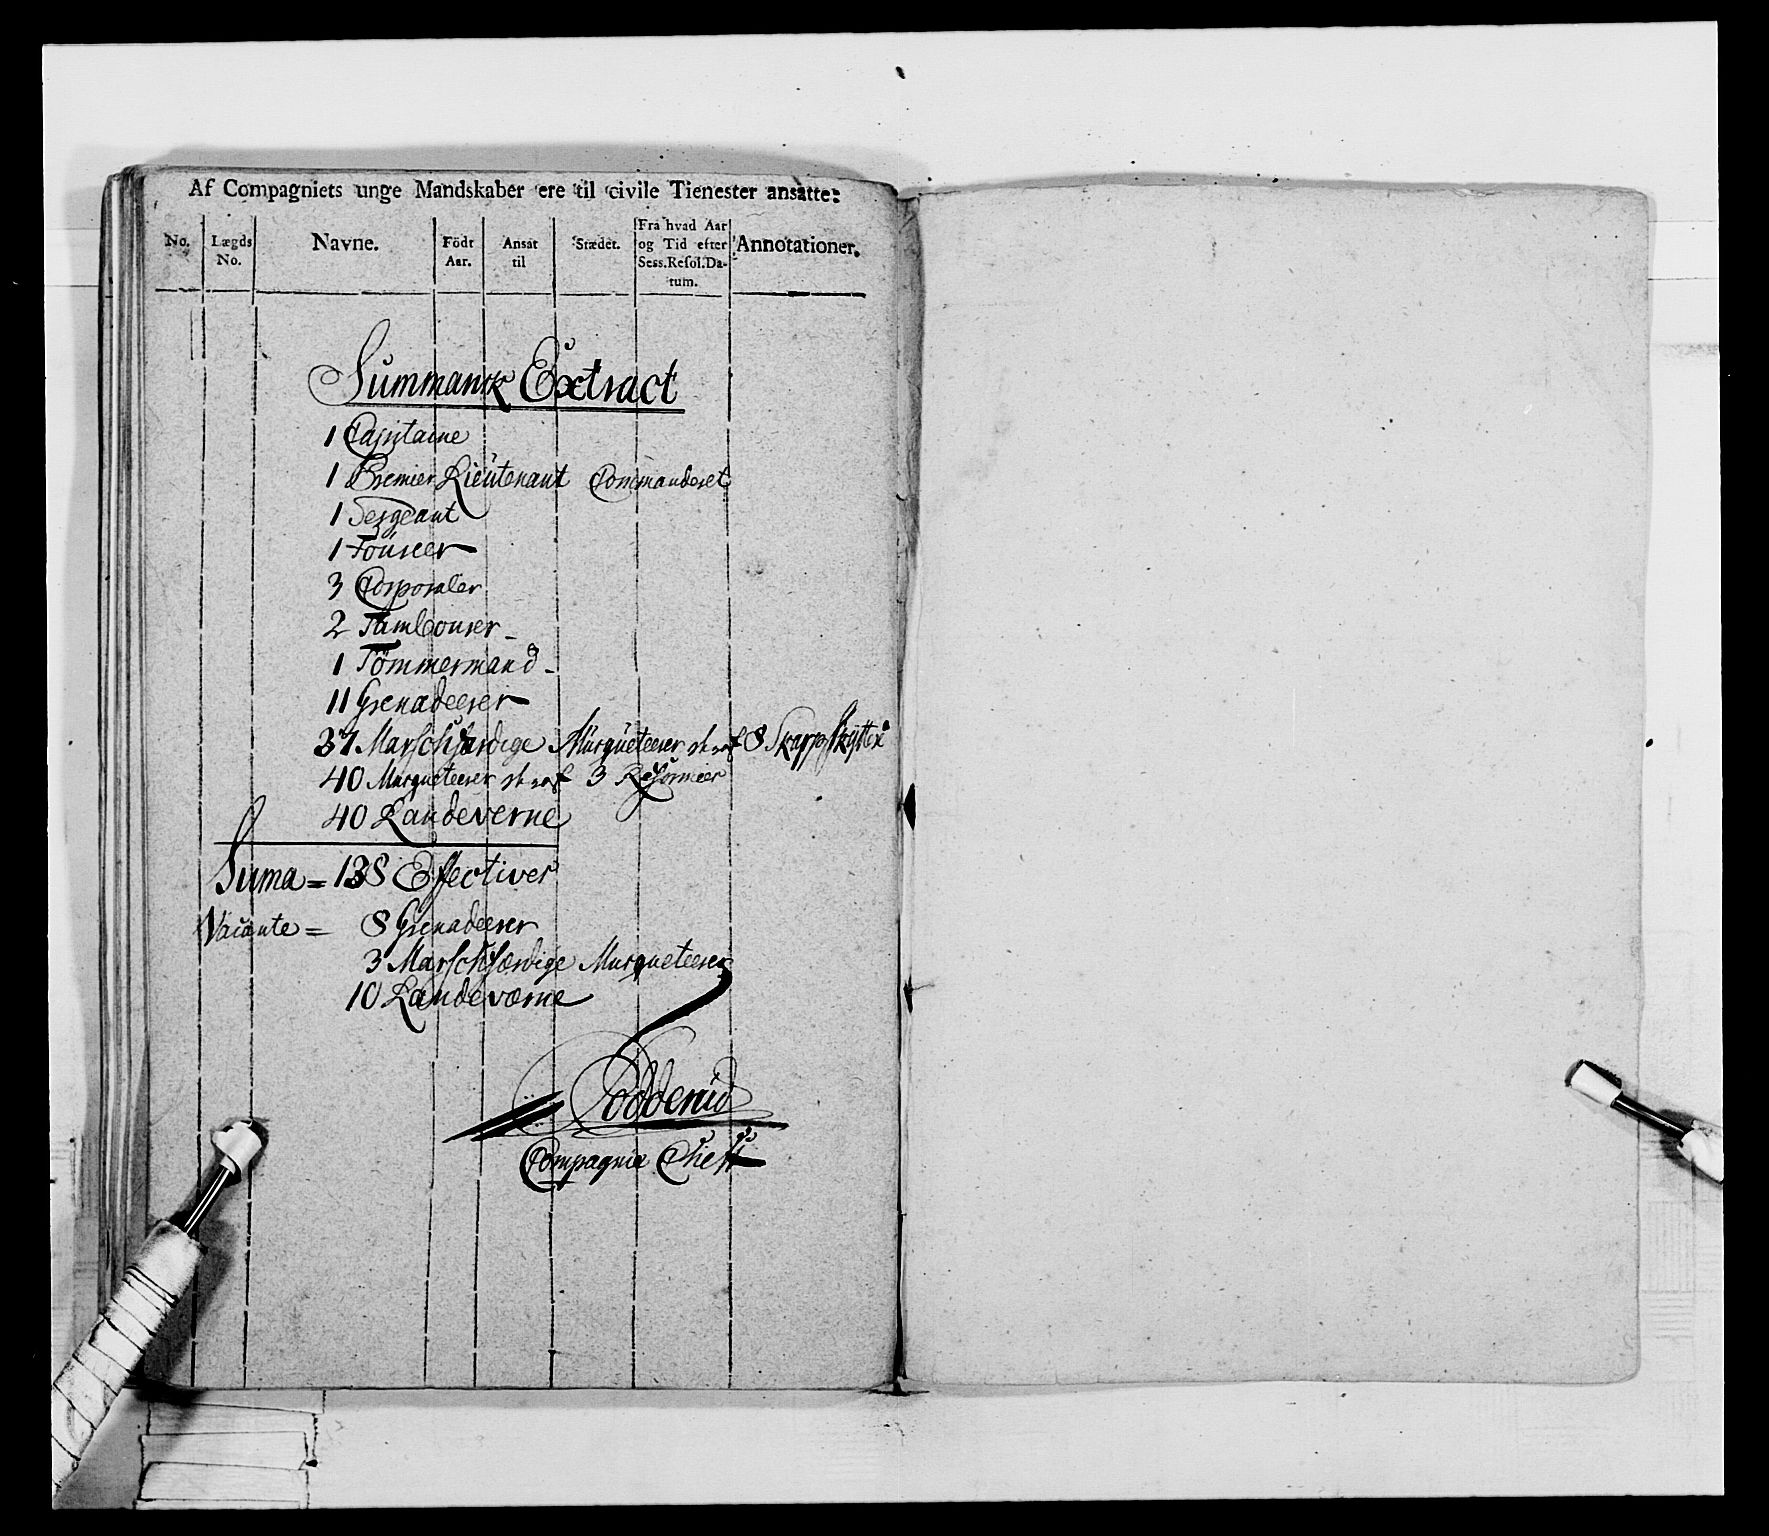 Af Compagniets unge Mandskaber ere til civile Tienester ansatte:
No.
Lægds No.
Navne.
Födt Aar.
Ansat til
Stædet.
Fra hvad Aar og Tid efter Sess.Resol.Datum.
Annotationer.
Summarisk Extract
1 Capitaine
1 Premier Lieutenant Commanderet
1 Sergeant
1 Foureer
3 Corporaler
2 Tambourer
1 Tömmermand
11 Grenadeerer
37 Marschfærdige Musqueteerer 8 Skarpskytter
40 Musqueteerer 3 Reformeer
40 Landeverne
Suma = 138 Effectiver
Vacante = 8 Grenadeerer
3 Marschfærdige Musqueteerer
10 Landeværne
Compagnie Cheff